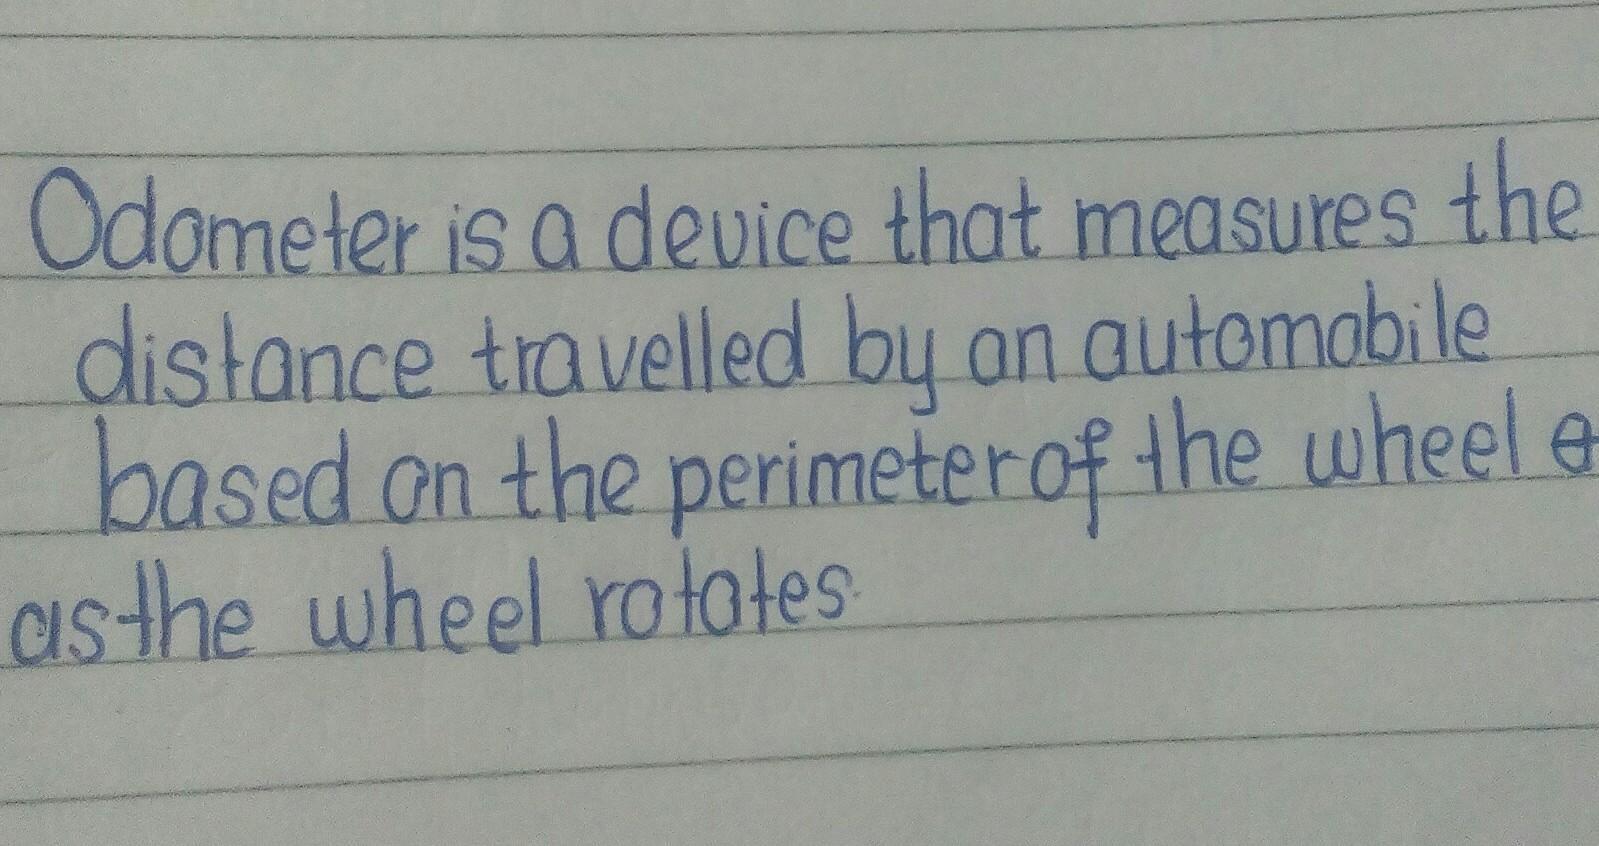 Odometer is a device that measures the
distance travelled by an automobile
based on the perimeter of the wheel
as the wheel rotates.